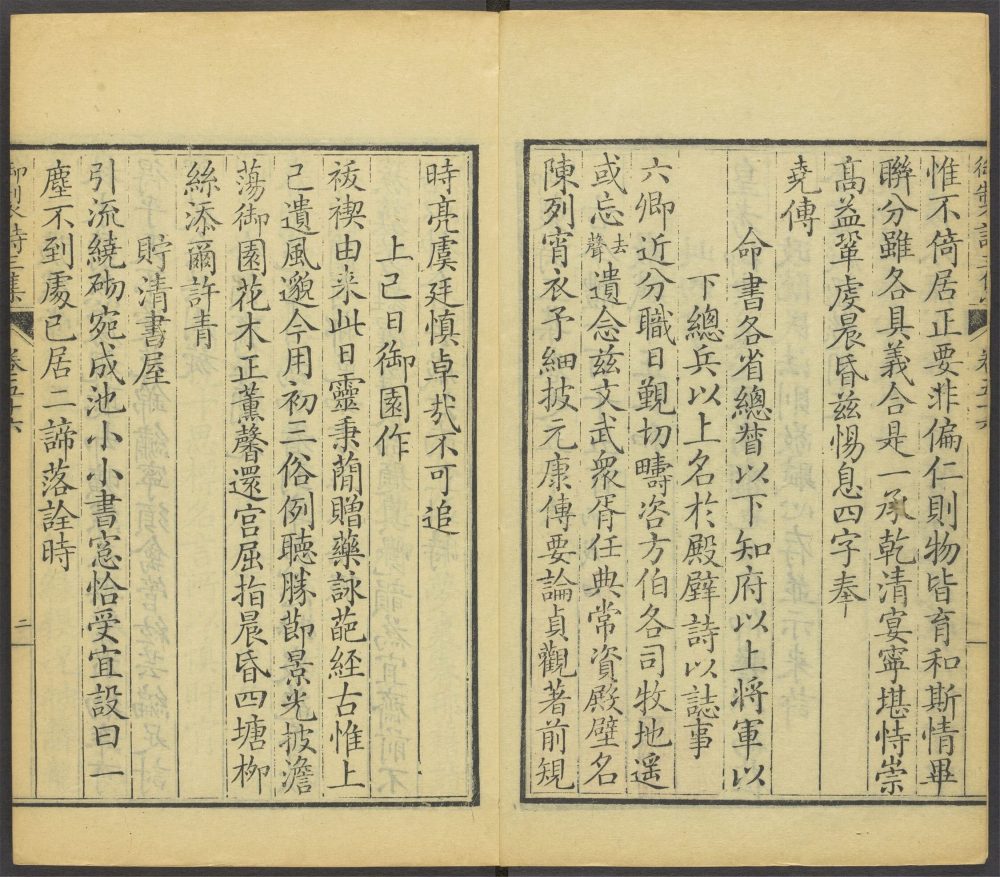 惟不倚居正要非偏仁則物皆育和斯情畢
聨分雖各具義合是一承乾清宴寧堪恃崇
髙益鞏虔晨昏兹惕息四字奉
堯傳
命書各省總督以下知府以上将軍以
下總兵以上名於殿壁詩以誌事
六卿近分職日覲切疇咨方伯各司牧地遥
或忘去聲遺念兹文武衆胥任典常資殿壁名
陳列宵衣予細披元康傳要論貞觀著前䂓
時亮虞廷慎卓㢤不可追
上巳日御園作
祓禊由来此日靈秉蕳贈藥詠葩經古惟上
巳遺風邈今用初三俗例聴勝節景光披澹
蕩御園花木正薰馨還宫屈指晨昏四塘柳
絲添爾許青
貯清書屋
引流繞砌宛成池小小書窓恰受宜設曰一
塵不到處已居二諦落詮時
卷五十六
二